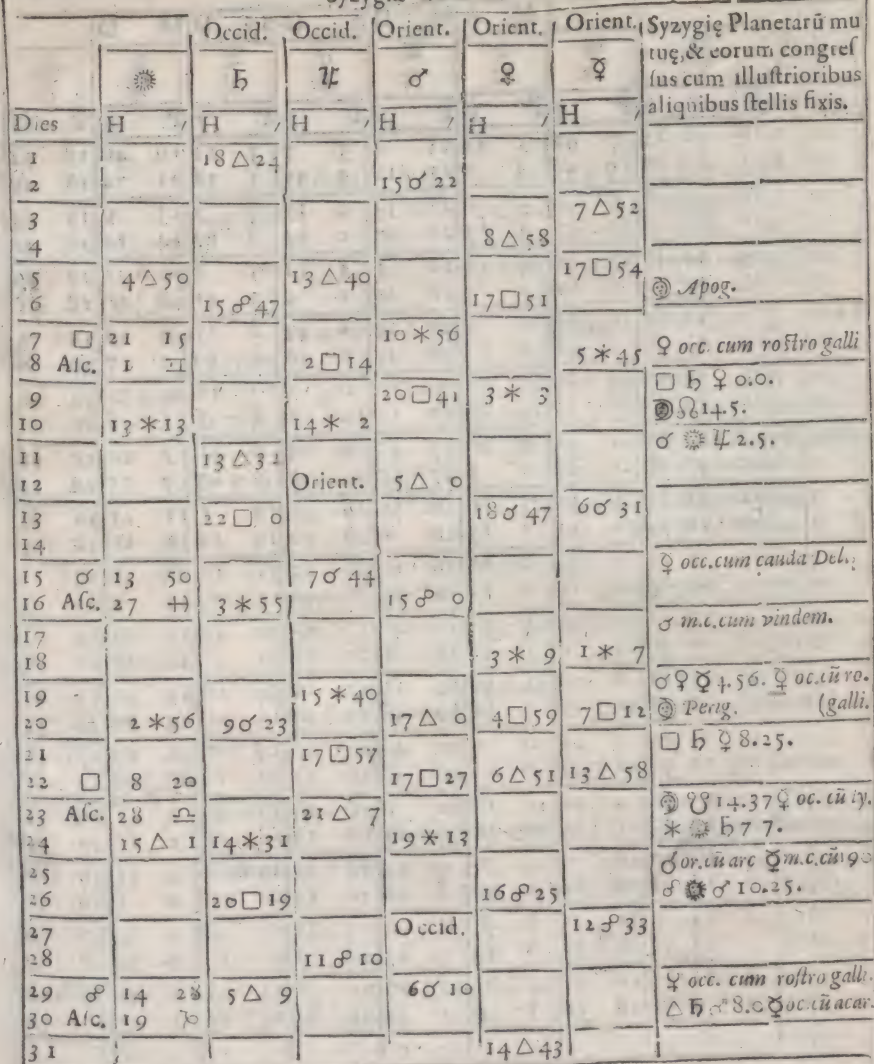 Occid. Occid. Orient. Orient. Orient. Syzygię Planetarū mu
☉ ♄ ♃ ♂ ♀ ☿ tuę, & eorum congreſ
ſus cum illuſtrioribus
Dies H ′ H ′ H ′ H ′ H ′ H ′ aliquibus ſtellis fixis.
1 18 △ 24
2 15 ☌ 22
3 7 △ 52
4 8 △ 58
5 4 △ 50 13 △ 40 17 □ 54
6 15 ☍ 47 17 □ 51 Apog.
7 □ 21 15 10 ⚹ 56
8 Aſc. 1 ♊ 2 □ 14 5 ⚹ 45 ♀ occ. cum roſtro galli
9 20 □ 41 3 ⚹ 3 □ ♄ ♀ 0.0.
10 13 ⚹ 13 14 ⚹ 2 ☊ 14.5.
11 13 △ 31 ☌ ☉ ♃ 2.5.
12 Orient. 5 △ 0
13 22 □ 0 18 ☌ 47 6 ☌ 31
14
15 ☌ 13 50 7 ☌ 44 ☿ occ. cum cauda Del.
16 Aſc. 27 ♓ 3 ⚹ 55 15 ☍ 0
17 ♂ m.c. cum vindem.
18 3 ⚹ 9 1 ⚹ 7
19 15 ⚹ 40 ☌ ♀ ☿ 4.56. ☿ oc. cū ro.
20 2 ⚹ 56 9 ☌ 23 17 △ 0 4 □ 59 7 □ 12 Perig. (galli.
21 17 □ 57 □ ♄ ☿ 8.25.
22 □ 8 20 17 □ 27 6 △ 51 13 △ 58
23 Aſc. 28 ♎ 21 △ 7 ☋ 14.37 ♀ oc. cū ly.
24 15 △ 1 14 ⚹ 31 19 ⚹ 13 ⚹ ☉ ♄ 7 7.
25 ♂ or. cū arc ☿ m.c. cū
26 20 □ 19 16 ☍ 25 ☍ ☉ ♂ 10.25.
27 Occid. 12 ☍ 33
28 11 ☍ 10
29 ☍ 14 28 5 △ 9 6 ☌ 10 ☿ occ. cum roſtro galli.
30 Aſc. 19 ♑ △ ♄ ♂ 8.0 ☿ oc. cū acar.
31 14 △ 43